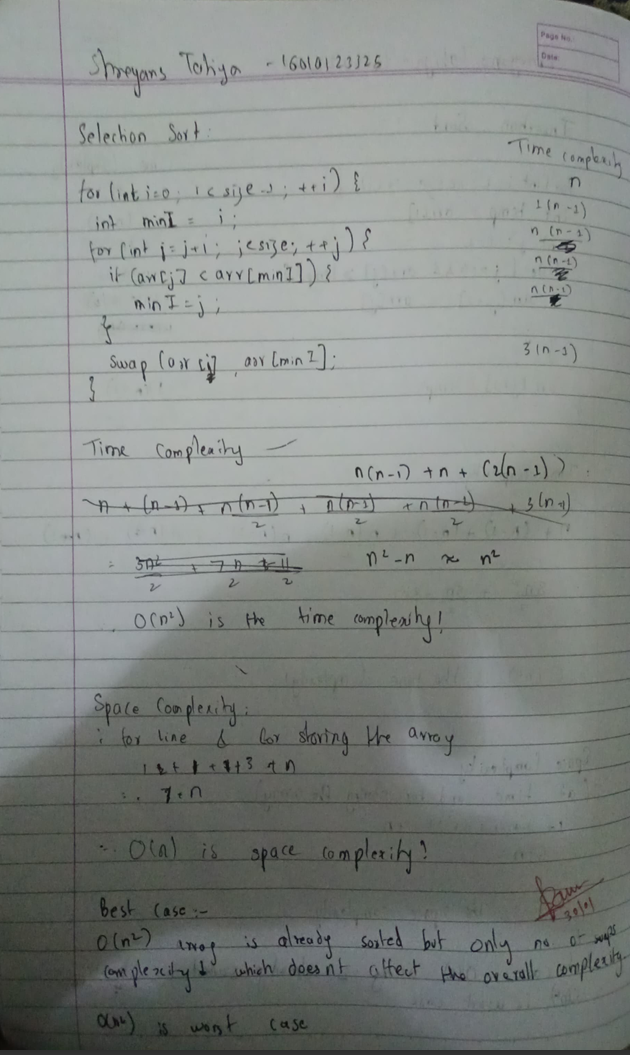 Page No.
Date
Shreyans Tatiya - 16010123325
Selection Sort:
Time complexity
for (int i=0; i< size-1; ++i) { n
int minI = i; 1(n-1)
for (int j=j+1; j<size; ++j) { n(n-1)
if (arr[j] < arr[minI]) { n(n-1)
minI = j; n(n-1)
}
swap (arr[i], arr[minI]; 3(n-1)
}
Time Complexity —
n(n-1) + n + (2(n-1))
n + (n-1) + n(n-1)/2 + n(n-1)/2 + n(n-1)/2 + 3(n-1)
= 3n²/2 + 7n/2 + 11/2 n² - n ≈ n²
O(n²) is the time complexity!
Space Complexity:
i for line & for storing the array
1 + 1 + 1 + 3 + n
∴ 7+n
∴ O(n) is space complexity!
Best Case:-
30/01
O(n²) array is already sorted but only no of swaps
complexity↓ which doesnt affect the overall complexity.
O(n²) is worst case